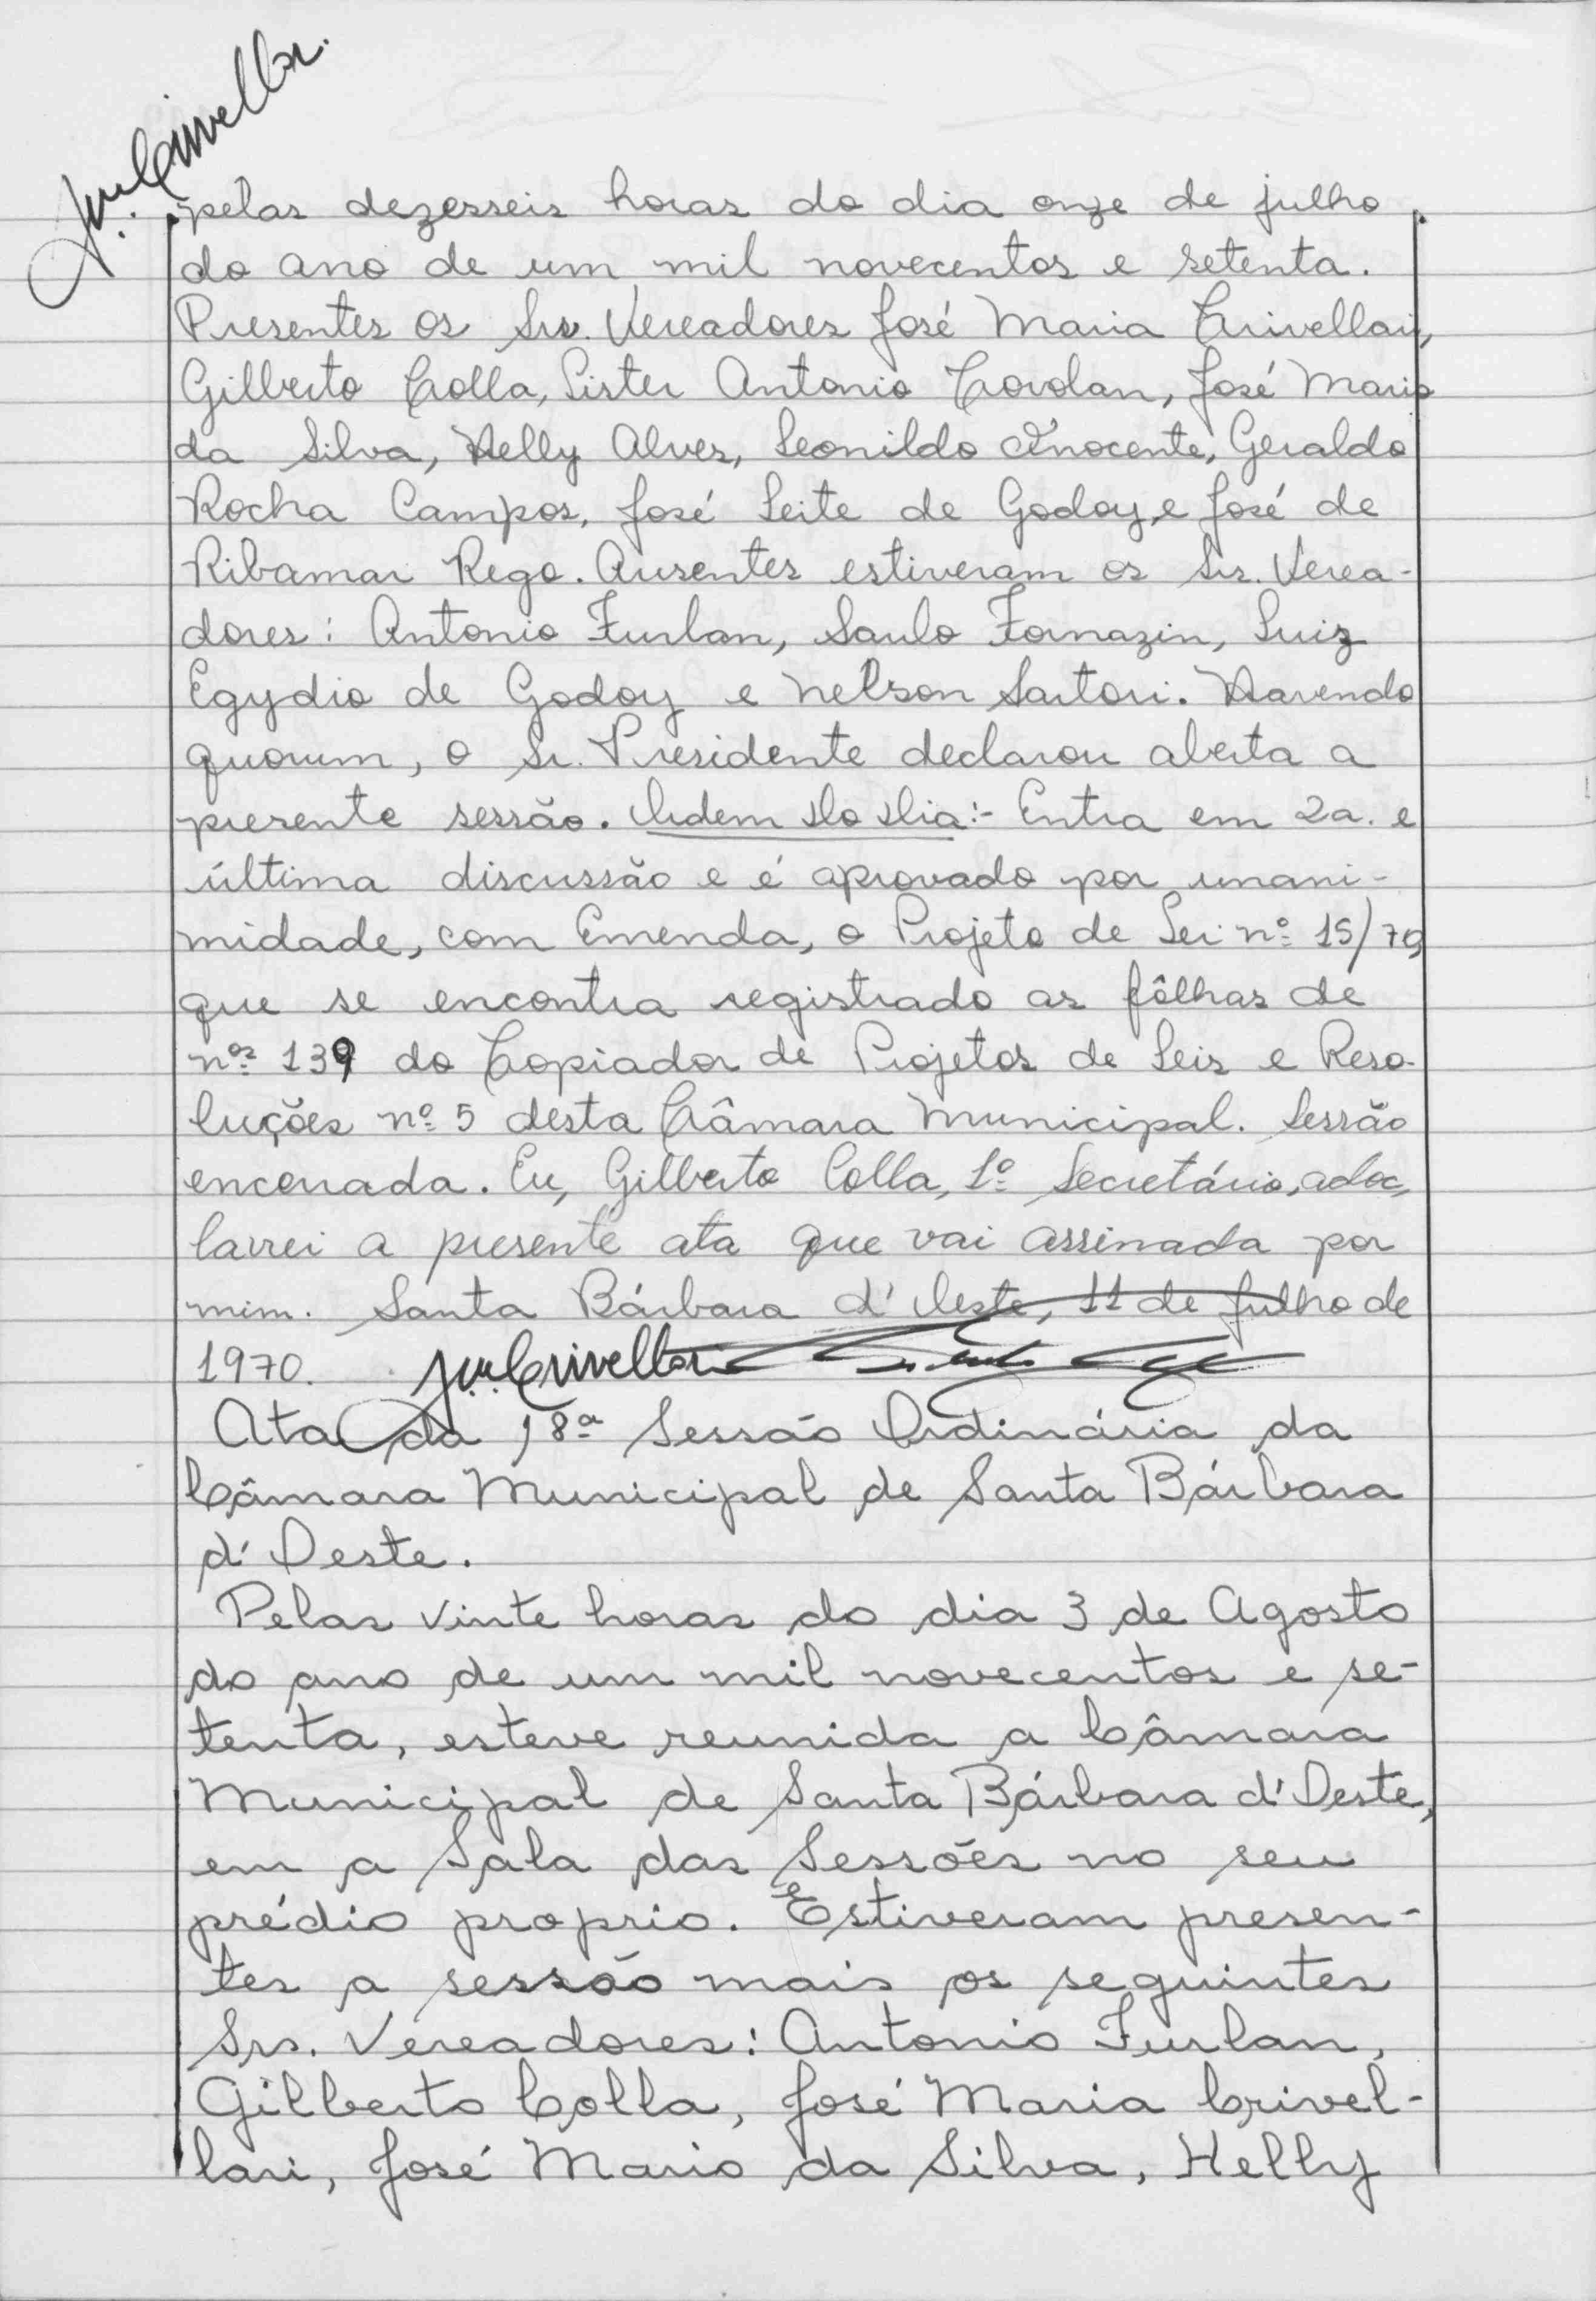 J.m.Crivellari.
pelas dezesseis horas do dia onze de julho
do ano de um mil novecentos e setenta.
Presentes os Srs. Vereadores José Maria Crivellari,
Gilberto Colla, Lister Antonio Covolan, José Mario
da Silva, Helly Alves, Leonildo Inocente, Geraldo
Rocha Campos, José Leite de Godoy, e José de
Ribamar Rego. Ausentes estiveram os Srs. Verea-
dores: Antonio Furlan, Saulo Fornazin, Luiz
Egydio de Godoy e Nelson Sartori. Havendo
quorum, o Sr. Presidente declarou aberta a
presente sessão. Ordem do dia:- Entra em 2a. e
última discussão e é aprovado por unani-
midade, com Emenda, o Projeto de Lei nº 15/70,
que se encontra registrado as fôlhas de
nºs 139 do Copiador de Projetos de Leis e Reso-
luções nº 5 desta Câmara Municipal. Sessão
encerrada. Eu, Gilberto Colla, 1º Secretário, adoc,
lavrei a presente ata que vai assinada por
mim. Santa Bárbara d'Oeste, 11 de julho de
1970. J.m.Crivellari
Ata da 18ª Sessão Ordinária da
Câmara Municipal de Santa Bárbara
d'Oeste.
Pelas vinte horas do dia 3 de Agosto
do ano de um mil novecentos e se-
tenta, esteve reunida a Câmara
Municipal de Santa Bárbara d'Oeste,
em a Sala das Sessões no seu
prédio proprio. Estiveram presen-
tes a sessão mais os seguintes
Srs. Vereadores: Antonio Furlan,
Gilberto Colla, José Maria Crivel-
lari, José Mario da Silva, Helly